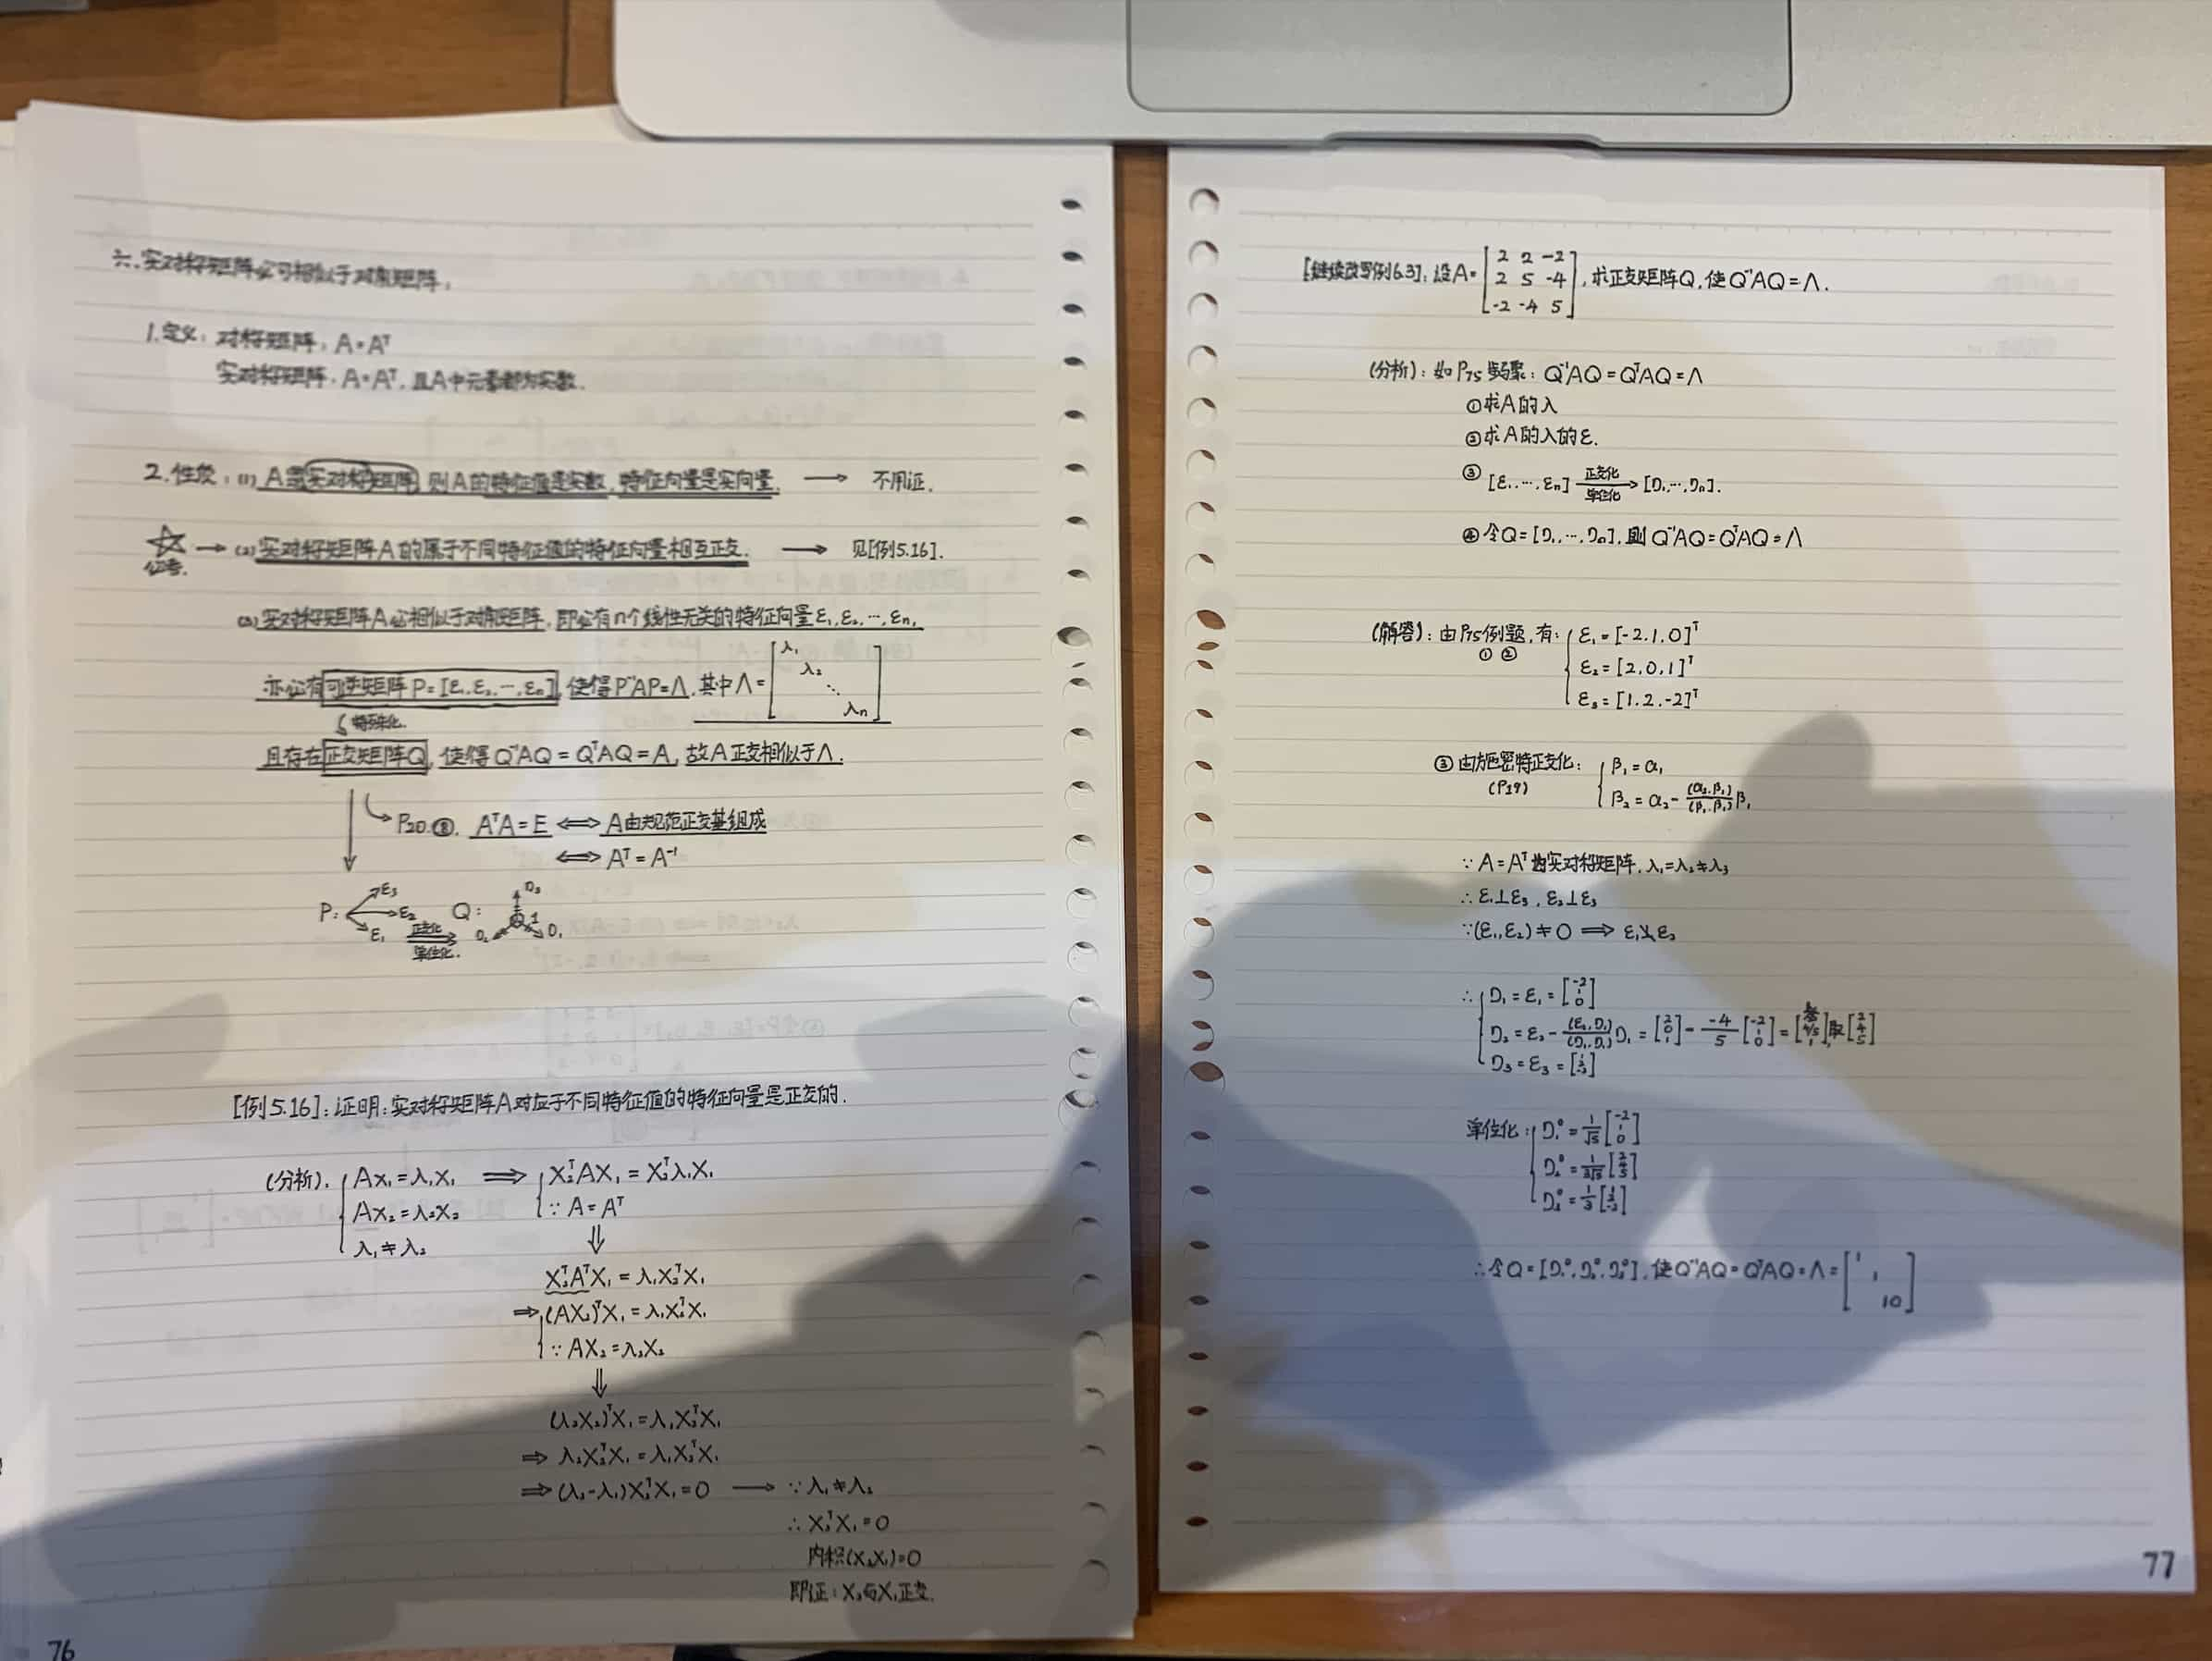 六.实对称矩阵必可相似于对角矩阵.
1.定义: 对称矩阵: A=Aᵀ
实对称矩阵: A=Aᵀ, 且A中元素都为实数.
2.性质: (1) A是实对称矩阵, 则A的特征值是实数, 特征向量是实向量. → 不用证.
☆ → (2) 实对称矩阵A的属于不同特征值的特征向量相互正交. → 见[例5.16].
(3) 实对称矩阵A必相似于对角矩阵, 即必有n个线性无关的特征向量ε₁,ε₂,…,εn,
亦必有可逆矩阵P=[ε₁,ε₂,…,εn], 使得P⁻¹AP=Λ, 其中Λ=[λ₁ λ₂ ⋱ λn]
特殊化
且存在正交矩阵Q, 使得Q⁻¹AQ=QᵀAQ=A, 故A正交相似于Λ.
P20.⑧. AᵀA=E ⟺ A由规范正交基组成
⟺ Aᵀ=A⁻¹
P: ε₃ ε₂ ε₁ 正交化 单位化. Q: D₃ D₂ D₁ 1
[例5.16]: 证明: 实对称矩阵A对应于不同特征值的特征向量是正交的.
(分析). { Ax₁=λ₁X₁ ⟹ { X₂ᵀAX₁=X₂ᵀλ₁X₁
AX₂=λ₂X₂ ∵ A=Aᵀ
λ₁≠λ₂ ⇓
X₂ᵀAᵀX₁=λ₁X₂ᵀX₁
⇒ (AX₂)ᵀX₁=λ₁X₂ᵀX₁
∵ AX₂=λ₂X₂
⇓
(λ₂X₂)ᵀX₁=λ₁X₂ᵀX₁
⇒ λ₂X₂ᵀX₁=λ₁X₂ᵀX₁
⇒ (λ₂-λ₁)X₂ᵀX₁=0 → ∵ λ₁≠λ₂
∴ X₂ᵀX₁=0
内积(X₂,X₁)=0
即证: X₂与X₁正交.
76
[继续改写例6.3]: 设A=[2 2 -2; 2 5 -4; -2 -4 5], 求正交矩阵Q, 使Q⁻¹AQ=Λ.
(分析): 如P75步骤: Q⁻¹AQ=QᵀAQ=Λ
①求A的λ
②求A的λ的ε.
③ [ε₁,…,εn] 正交化 单位化 → [D₁,…,Dn].
④令Q=[D₁,…,Dn], 则Q⁻¹AQ=QᵀAQ=Λ
(解答): 由P75例题, 有: { ε₁=[-2,1,0]ᵀ
① ② ε₂=[2,0,1]ᵀ
ε₃=[1,2,-2]ᵀ
③ 由施密特正交化: { β₁=α₁
(P19) β₂=α₂-(α₂,β₁)/(β₁,β₁)β₁
∵ A=Aᵀ为实对称矩阵, λ₁=λ₂≠λ₃
∴ ε₁⊥ε₃, ε₂⊥ε₃
∵(ε₁,ε₂)≠0 ⟹ ε₁⊥̸ε₂
∴ { D₁=ε₁=[-2 1 0]
D₂=ε₂-(ε₂,D₁)/(D₁,D₁)D₁=[2 0 1]- -4/5 [-2 1 0]=[ 4/5 1], 取[2 4 5]
D₃=ε₃=[1 2 -2]
单位化: { D₁°=1/√5[-2 1 0]
D₂°=1/3√5[2 4 5]
D₃°=1/3[1 2 -2]
∴令Q=[D₁°,D₂°,D₃°], 使Q⁻¹AQ=QᵀAQ=Λ=[1 1 10]
77